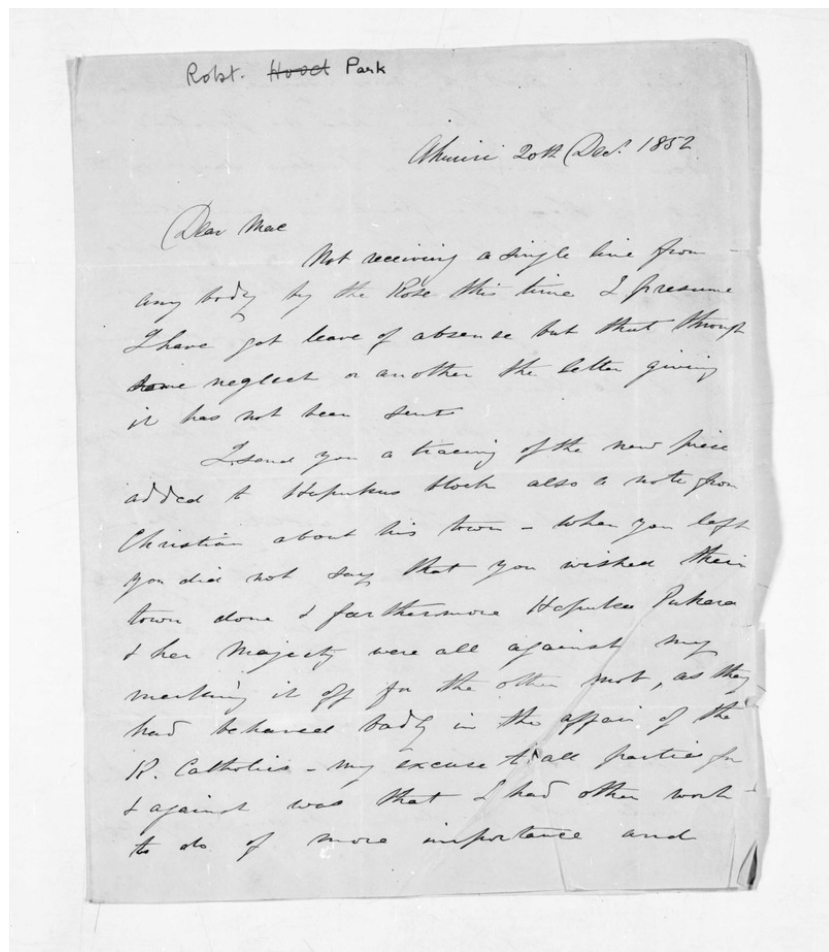 Robt. Hood Park
Ahuriri 20th Decr. 1852
Dear Mac
Not receiving a single line from
any body by the Rose this time I presume
I have got leave of absense but that through
some neglect or another the letter giving
it has not been sent
I send you a tracing of the new piece
added to Hapukus block also a note from
Christian about his town - When you left
you did not say that you wished their
town done & farthermore Hapuku Puhara
& her Majesty were all against my
marking it off for the other mob, as they
had behaved badly in the affair of the
R. Catholics - my excuse to all parties for
& against was that I had other work
to do of more importance and